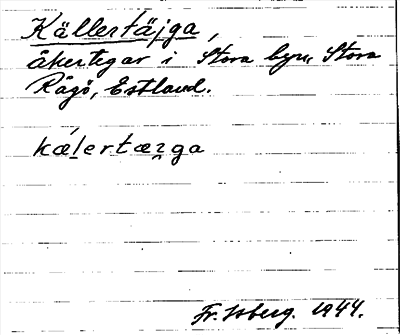 Källertäjga,
åkertegar i Stora byn, Stora
Rågö, Estland.
kálertæꝛga
Fr. Isberg. 1944.